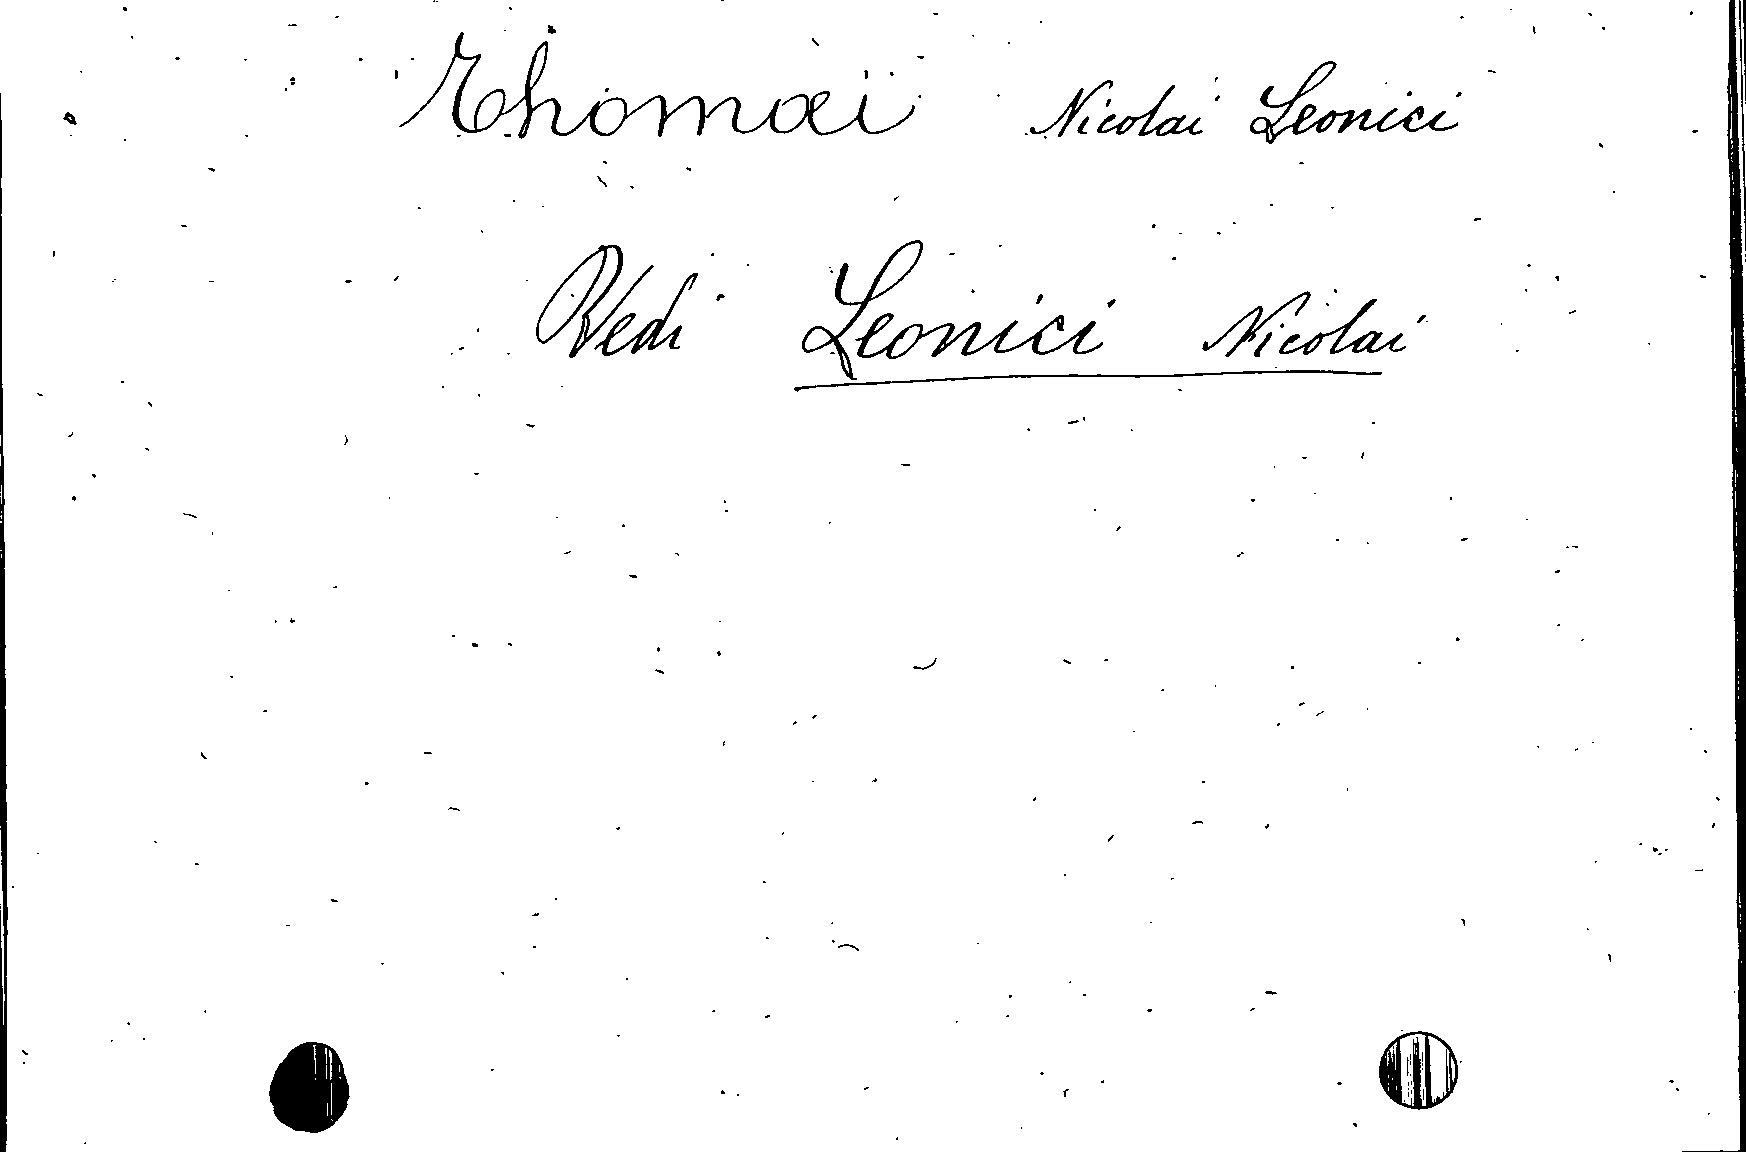 Thomaei Nicolai Leonici
Vedi Leonici Nicolai